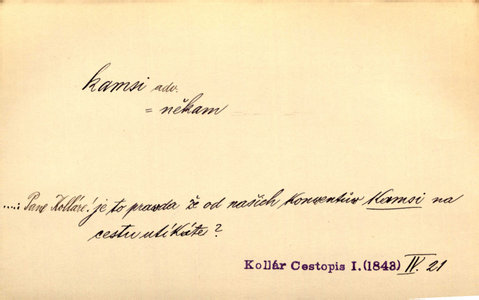 kamsi adv.
= někam
....: Pane Kolláre! je to pravda že od našich konventův kamsi na
cestu utíkáte?
Kollár Cestopis I. (1843) IV. 21